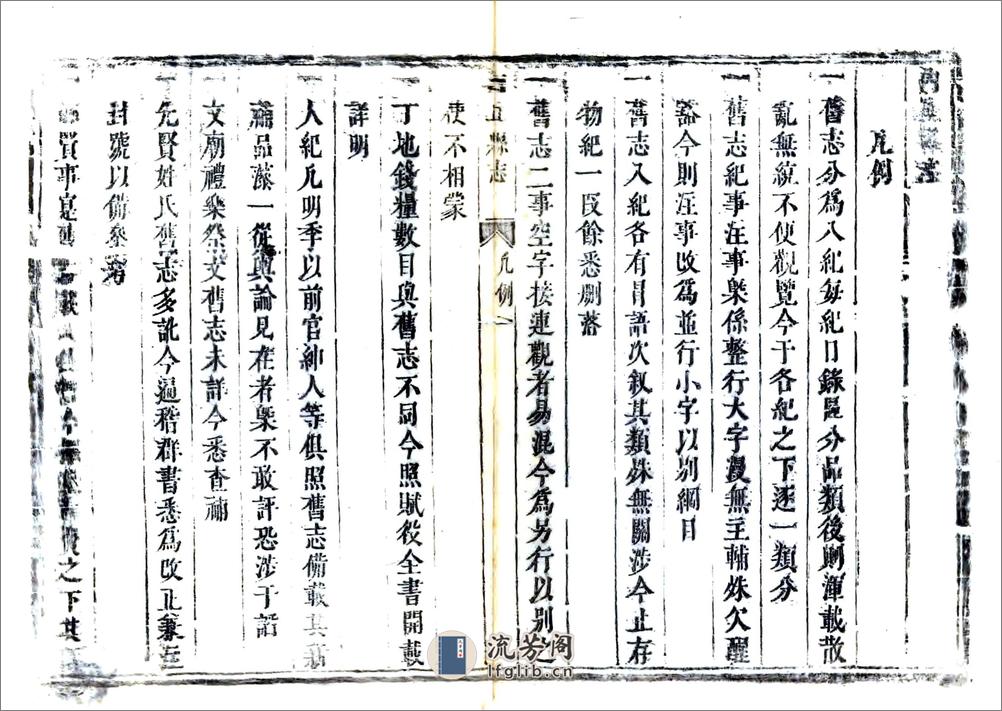 凡例
一舊志分為八紀每紀目錄區分品類後則渾載散
亂無統不便觀覽今于各紀之下逐一類分
一舊志紀事注事槩係整行大字漫無主輔殊欠醒
豁今則注事改為並行小字以別綱目
一舊志八紀各有冒語次叙其類殊無關涉今止存
物紀一段餘悉刪落
一舊志二事空字接連觀者易混今為另行以別之
使不相蒙
縣志
凡例
一丁地錢糧數目與舊志不同今照賦役全書開載
詳明
一人紀凡明季以前官紳人等俱照舊志備載其新
補品藻一從輿論見在者槩不敢評恐涉于謟
一文廟禮樂祭文舊志未詳今悉查補
一先賢姓氏舊志多訛今遍稽群書悉為改正兼
封號以備參考
賢事
載
今
之下其
流芳阁
lfglib.cn